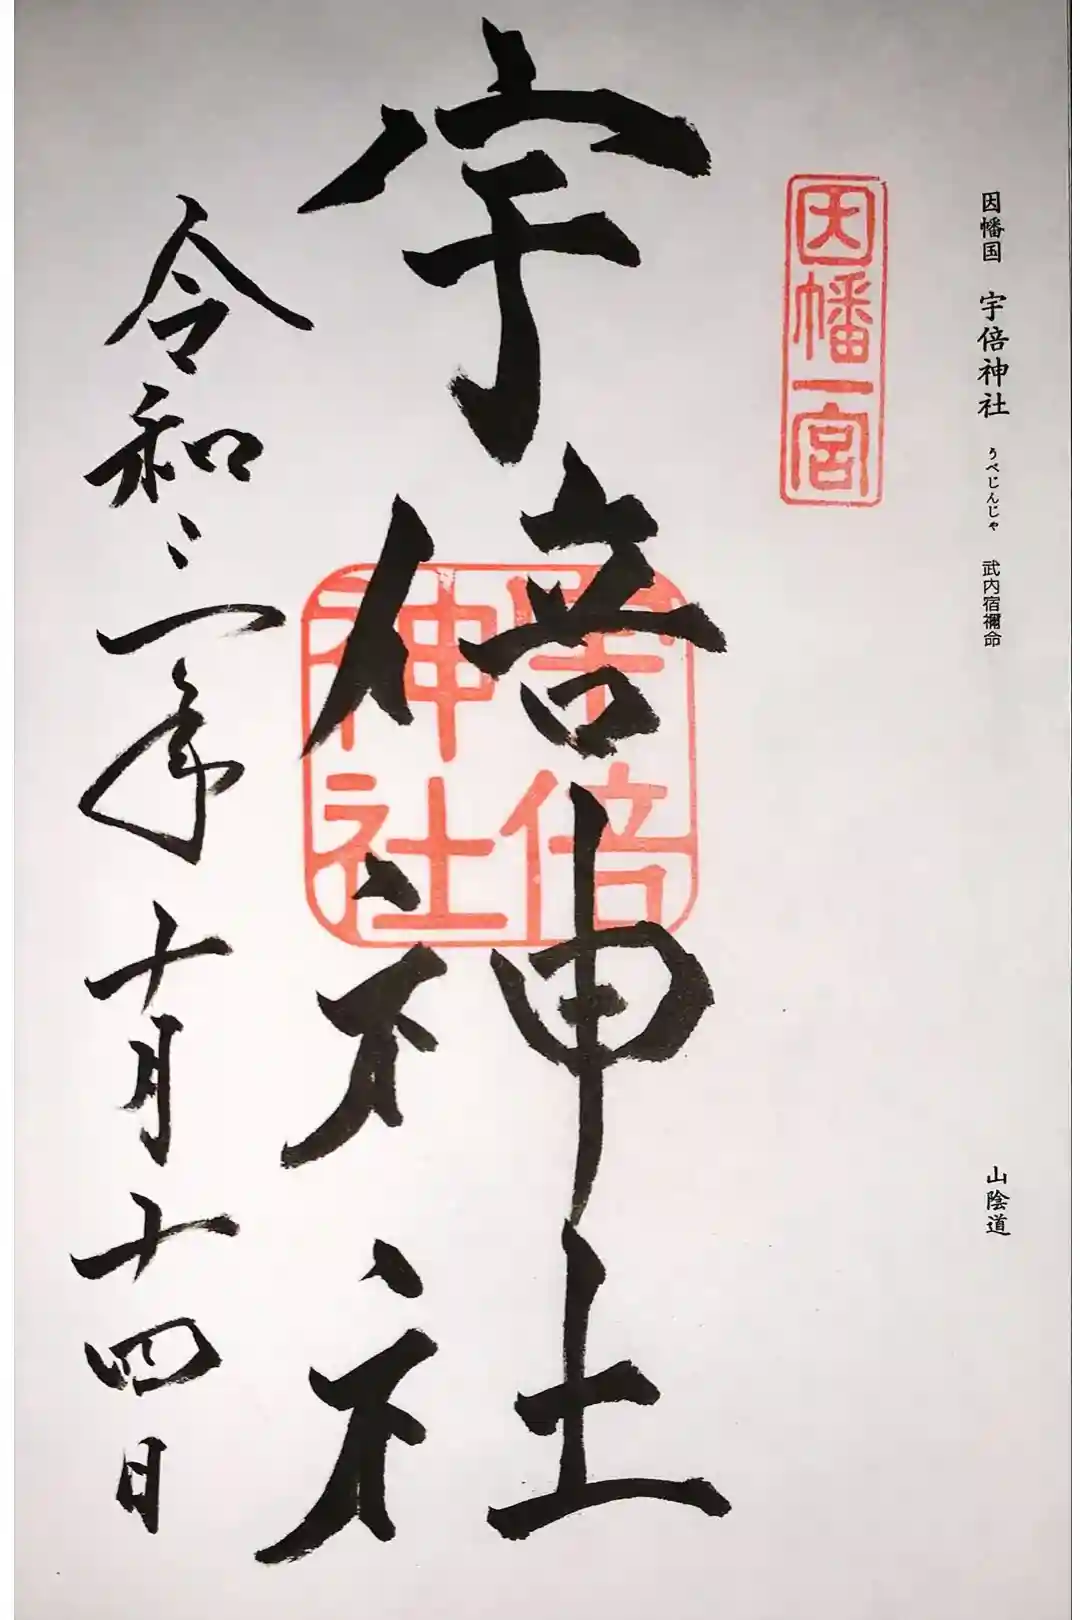 因幡国 宇倍神社 うべじんじゃ 武内宿禰命 山陰道
因幡一宮
宇倍神社
宇倍神社
令和三年十月十四日